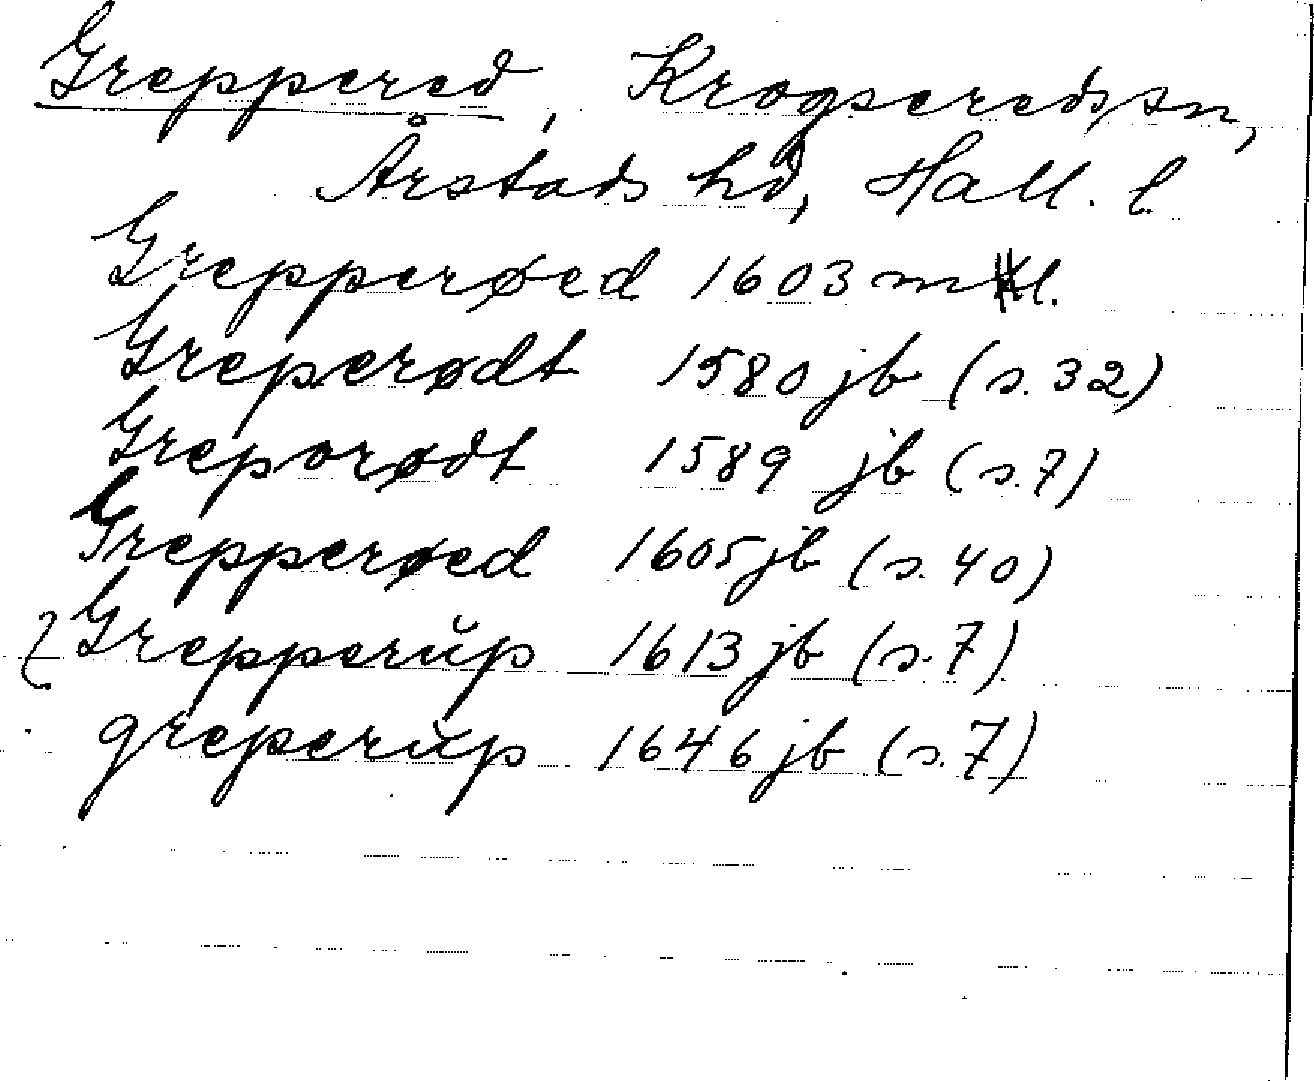 Greppered, Krogsereds sn,
Årstads hd, Hall. l
Grepperøed 1603 mtl.
Greperødt 1580 jb (s. 32)
Greporødt 1589 jb (s. 7)
Grepperøed 1605 jb (s. 40)
Grepperŭp 1613 jb (s. 7)
greperŭp 1646 jb (s. 7)